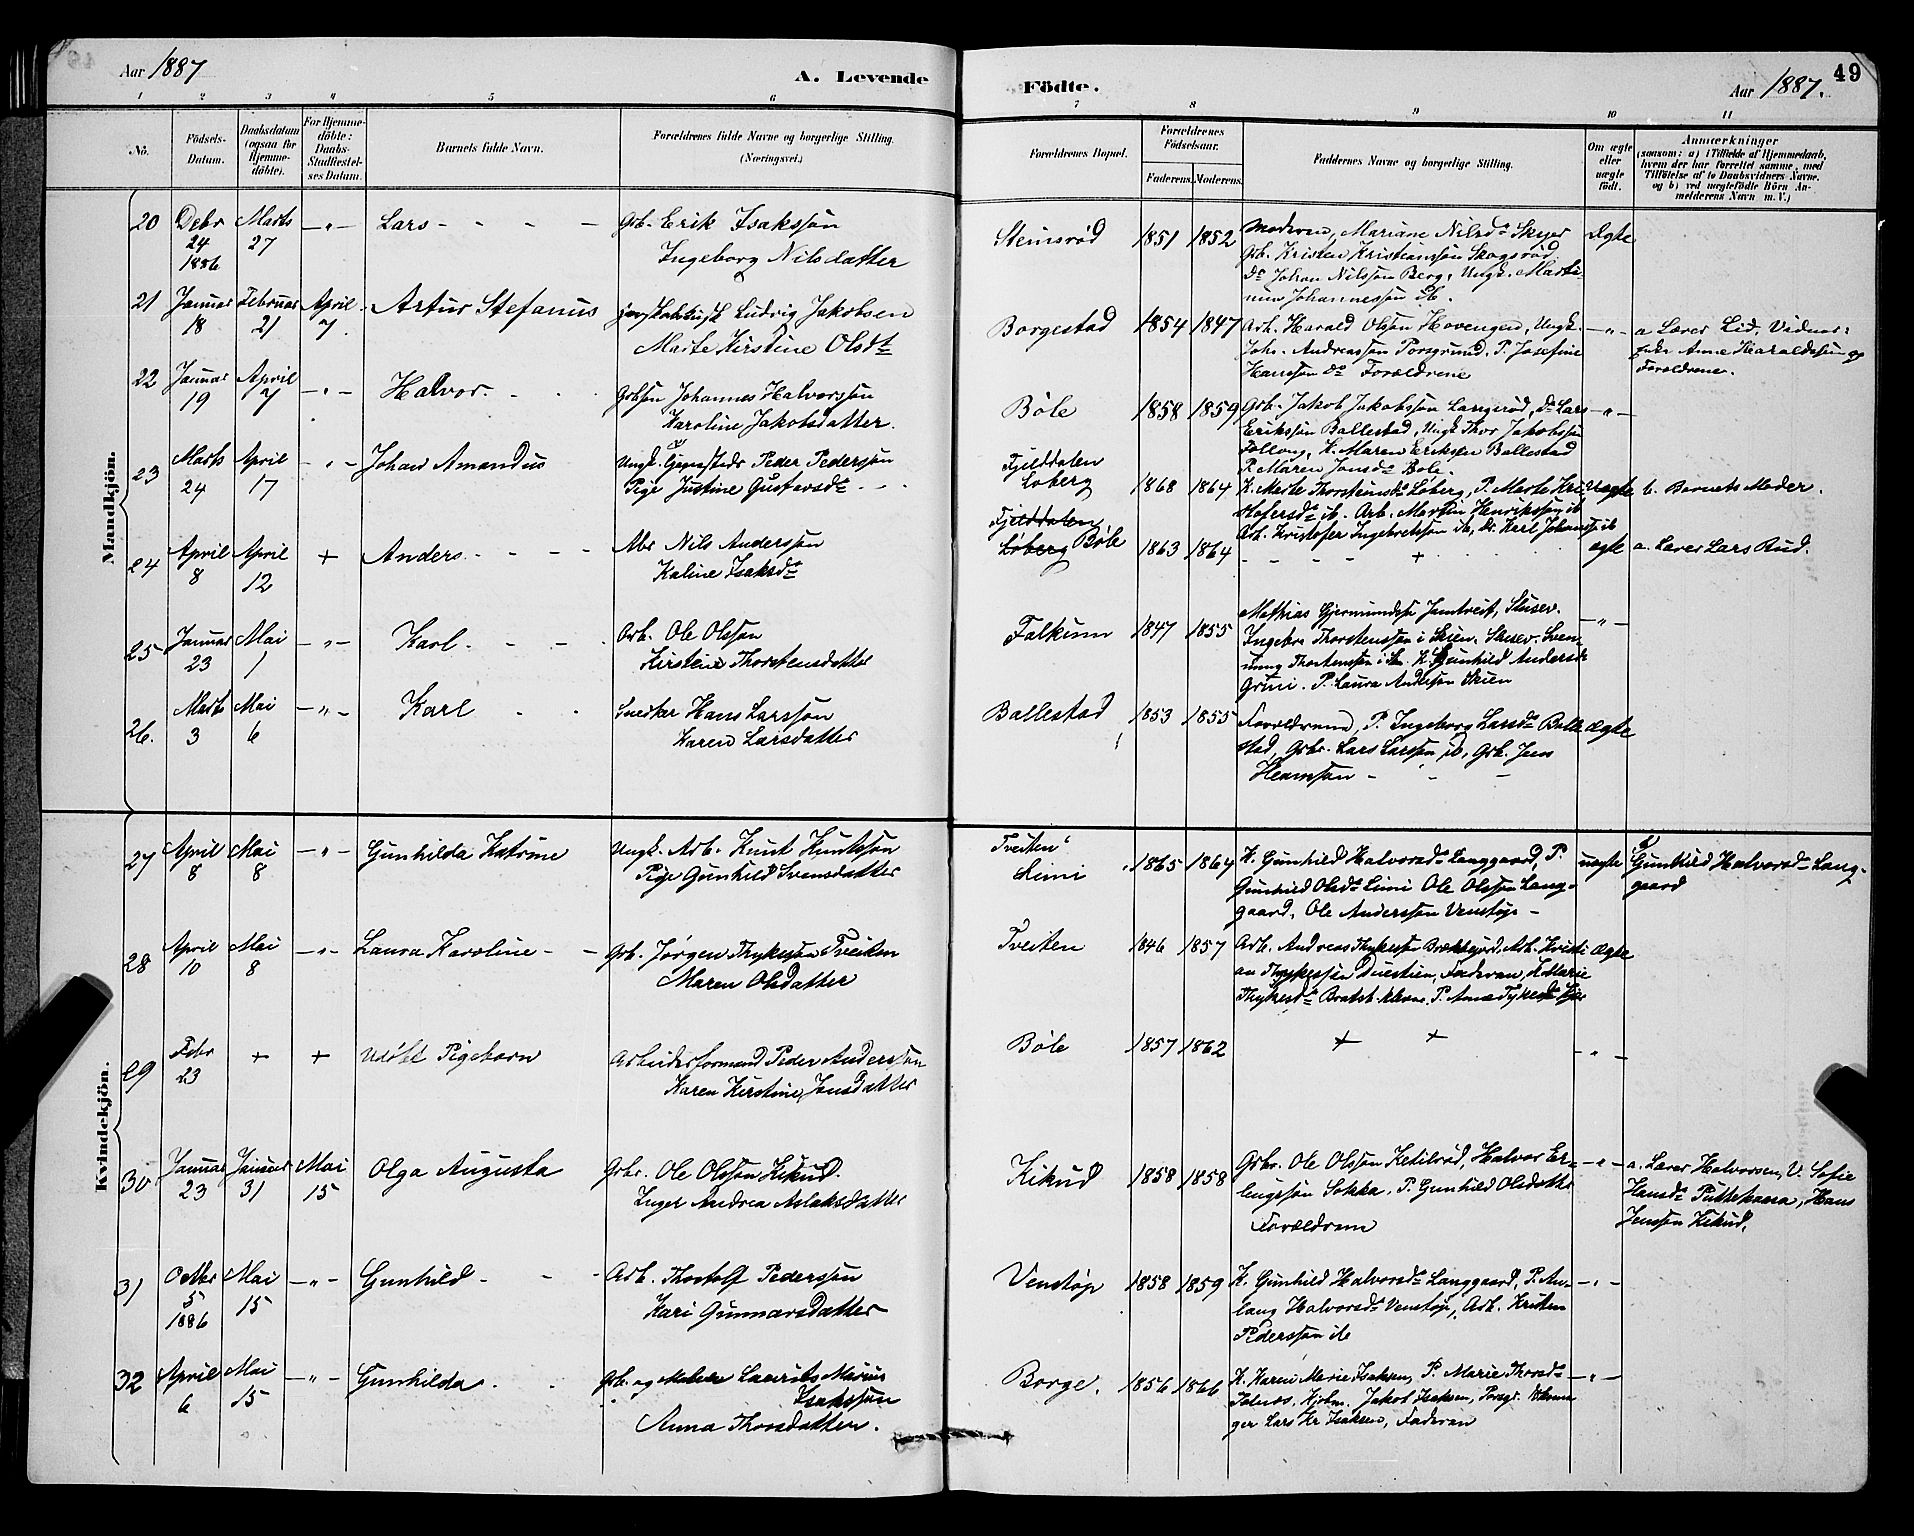 Aar 1887
A. Levende
Födte.
Aar 1887.
49
1 2 3 4 5 6 7 8 9 10 11
No.
Födsels-
Datum.
Daabsdatum
(ogsaa for
Hjemme-
döbte).
For Hjemme-
döbte:
Daabs-
Stadfæstel-
ses Datum.
Barnets fulde Navn.
Forældrenes fulde Navne og borgerlige Stilling.
(Næringsvei.)
Forældrenes Bopæl.
Forældrenes
Födselsaar.
Faderens. Moderens.
Faddernes Navne og borgerlige Stilling.
Om ægte
eller
uægte
født.
Anmærkninger
(saasom: a) i Tilfælde af Hjemmedaab,
hvem der har forrettet samme, med
Tilföielse af to Daabsvidners Navne,
og b) ved uægtefödte Börn An-
melderens Navn m. V.)
Mandkjön.
20 Debr 24 1886 Marts 27 -"- Lars Grb. Erik Isakssøn
Ingeborg Nilsdatter
Stensrød 1851 1852 Moderen, Mariane Nilsd. Skyer
Grb. Kristen Kristianssøn Skogsrød
Do Johan Nilssøn Berg, Ungk. Marti-
nius Johannessøn ib. Ægte
21 Januar 18 Februar 21 April 7 Artur Stefanus Ludvig Jakobsen
Marte Kirstine Olsdt
Borgestad 1854 1847 Arb. Harald Olsøn Hovengen, Ungk.
Joh. Andreassøn Porsgrund, P. Josefine
Hanssøn do Forældrene -"- a Lærer Lid, Vidner:
Anne Haraldssøn og
Forældrene.
22 Januar 19 April 7 -"- Halvor. Grbsøn Johannes Halvorssøn
Karoline Jakobsdatter.
Bøle 1858 1859 Grb. Jakob Jakobssøn Langerød, do Lars
Erikssøn Ballestad, Ungk Thor Jakobssøn
K. Maren Eriksen Ballestad
P. Maren Jonsd Bøle. -"-
23 Marts 24 April 17 -"- Johan Amandus Ungk. Peder Pederssøn
Pige Justine Gustavsdt
Fjelddalen
Løberg 1868 1864 K. Marte Thorstensd Løberg, P. Marte Kri-
stofersd ib. Arb. Martin Henrikssøn ib
Arb. Kristofer Ingebretssøn ib, do. Karl Johanss. ib uægte b. Barnets Moder.
24 April 8 April 12 + Anders Abr Nils Anderssøn
Kaline Isaksdt
Fjelddalen
Løberg Bøle 1863 1864 + ægte a. Lærer Lars Rud.
25 Januar 23 Mai 1 -"- Karl. Arb. Ole Olssøn
Kirstine Thorstensdatter
Falkum 1847 1855 Mathias Gjermundssen Jamtveit, Stuser.
Ingebr. Thorstenssøn i Skien. Stuser. Sven-
nung Thorstenssøn i K. Gunhild Andersd
Grini. P. Laura Andersen Skien -"-
26. Marts 3 Mai 6 -"- Karl Snedker Hans Larssøn
Karen Larsdatter
Ballestad 1853 1855 Forældrene, P. Ingeborg Larsd Balle-
stad, Grbr. Lars Larssøn ib, Grb. Jens
ægte
Kvindekjön.
27 April 8 Mai 8 -"- Gunhilda Katrine Ungk. Arb. Knut Knutssøn
Pige Gunhild Svensdatter
Tveiten
Limi 1865 1864 K. Gunhild Halvorsd Langgaard, P.
Gunhild Olsd Limi Ole Olssøn Lang-
gaard, Ole Anderssøn Venstøp uægte Gunhild Halvorsd Lang-
gaard
28 April 10 Mai 8 -"- Laura Karoline Grb. Jørgen Thykessøn Tveiten
Maren Olsdatter
Tveiten 1846 1857 Arb. Andreas Thykessøn Brækkejord, Arb. Kristi-
an Thykessøn Faderen, K. Marie
Thykesd P. Anne Tykesd ægte
29 Febr 23 + + Udøbt Pigebarn Arbeidsformand Peder Anderssøn
Karen Kirstine Jensdatter
Bøle 1857 1862 + + -"-
30 Januar 23 Januar 31 Mai 15 Olga Augusta Grbr. Ole Olssøn Kikud.
Inger Andrea Aslaksdatter
Kikud 1858 1858 Grbr. Ole Olssøn Ketilsrød, Halvor Er-
lingssøn Sokka, P. Gunhild Olsdatter
Forældrene -"- a. Lærer Halvorsen, V. Sofie
Hansd Hans
Jenssøn Kikud.
31 Octbr 5 1886 Mai 15 -"- Gunhild Arb. Thorolf Pederssøn
Kari Gunnarsdatter
Venstøp 1858 1859 K. Gunhild Halvorsd Langgaard, P. An-
laug Halvorsd Venstøp, Arb. Kristen
Pederssøn ib -"-
32 April 6 Mai 15 -"- Gunhilda Grb. og Maler Laurits Marius
Isakssøn
Anna Thorsdatter.
Borge. 1856 1866 K. Karen Marie Isaksen, P. Marie Thorsd
Jakob Isaksen, Porsgr.
ger Lars Kr Isaksen, Faderen -"-